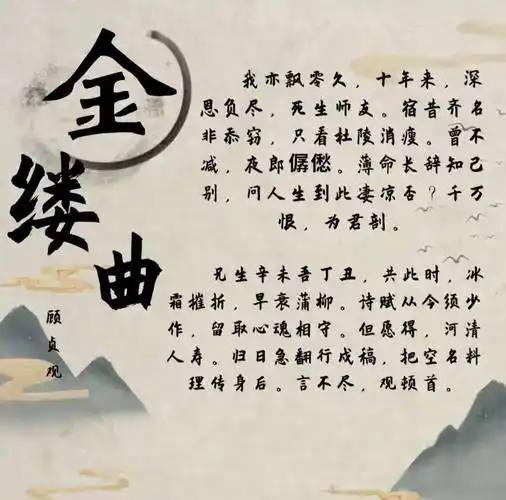 金缕曲
顾贞观
我亦飘零久，十年来，深
恩负尽，死生师友。宿昔齐名
非忝窃，只看杜陵消瘦。曾不
减，夜郎僝僽。薄命长辞知己
别，问人生到此凄凉否？千万
恨，为君剖。
兄生辛未吾丁丑，共此时，冰
霜摧折，早衰蒲柳。诗赋从今须少
作，留取心魂相守。但愿得，河清
人寿。归日急翻行戍稿，把空名料
理传身后。言不尽，观顿首。